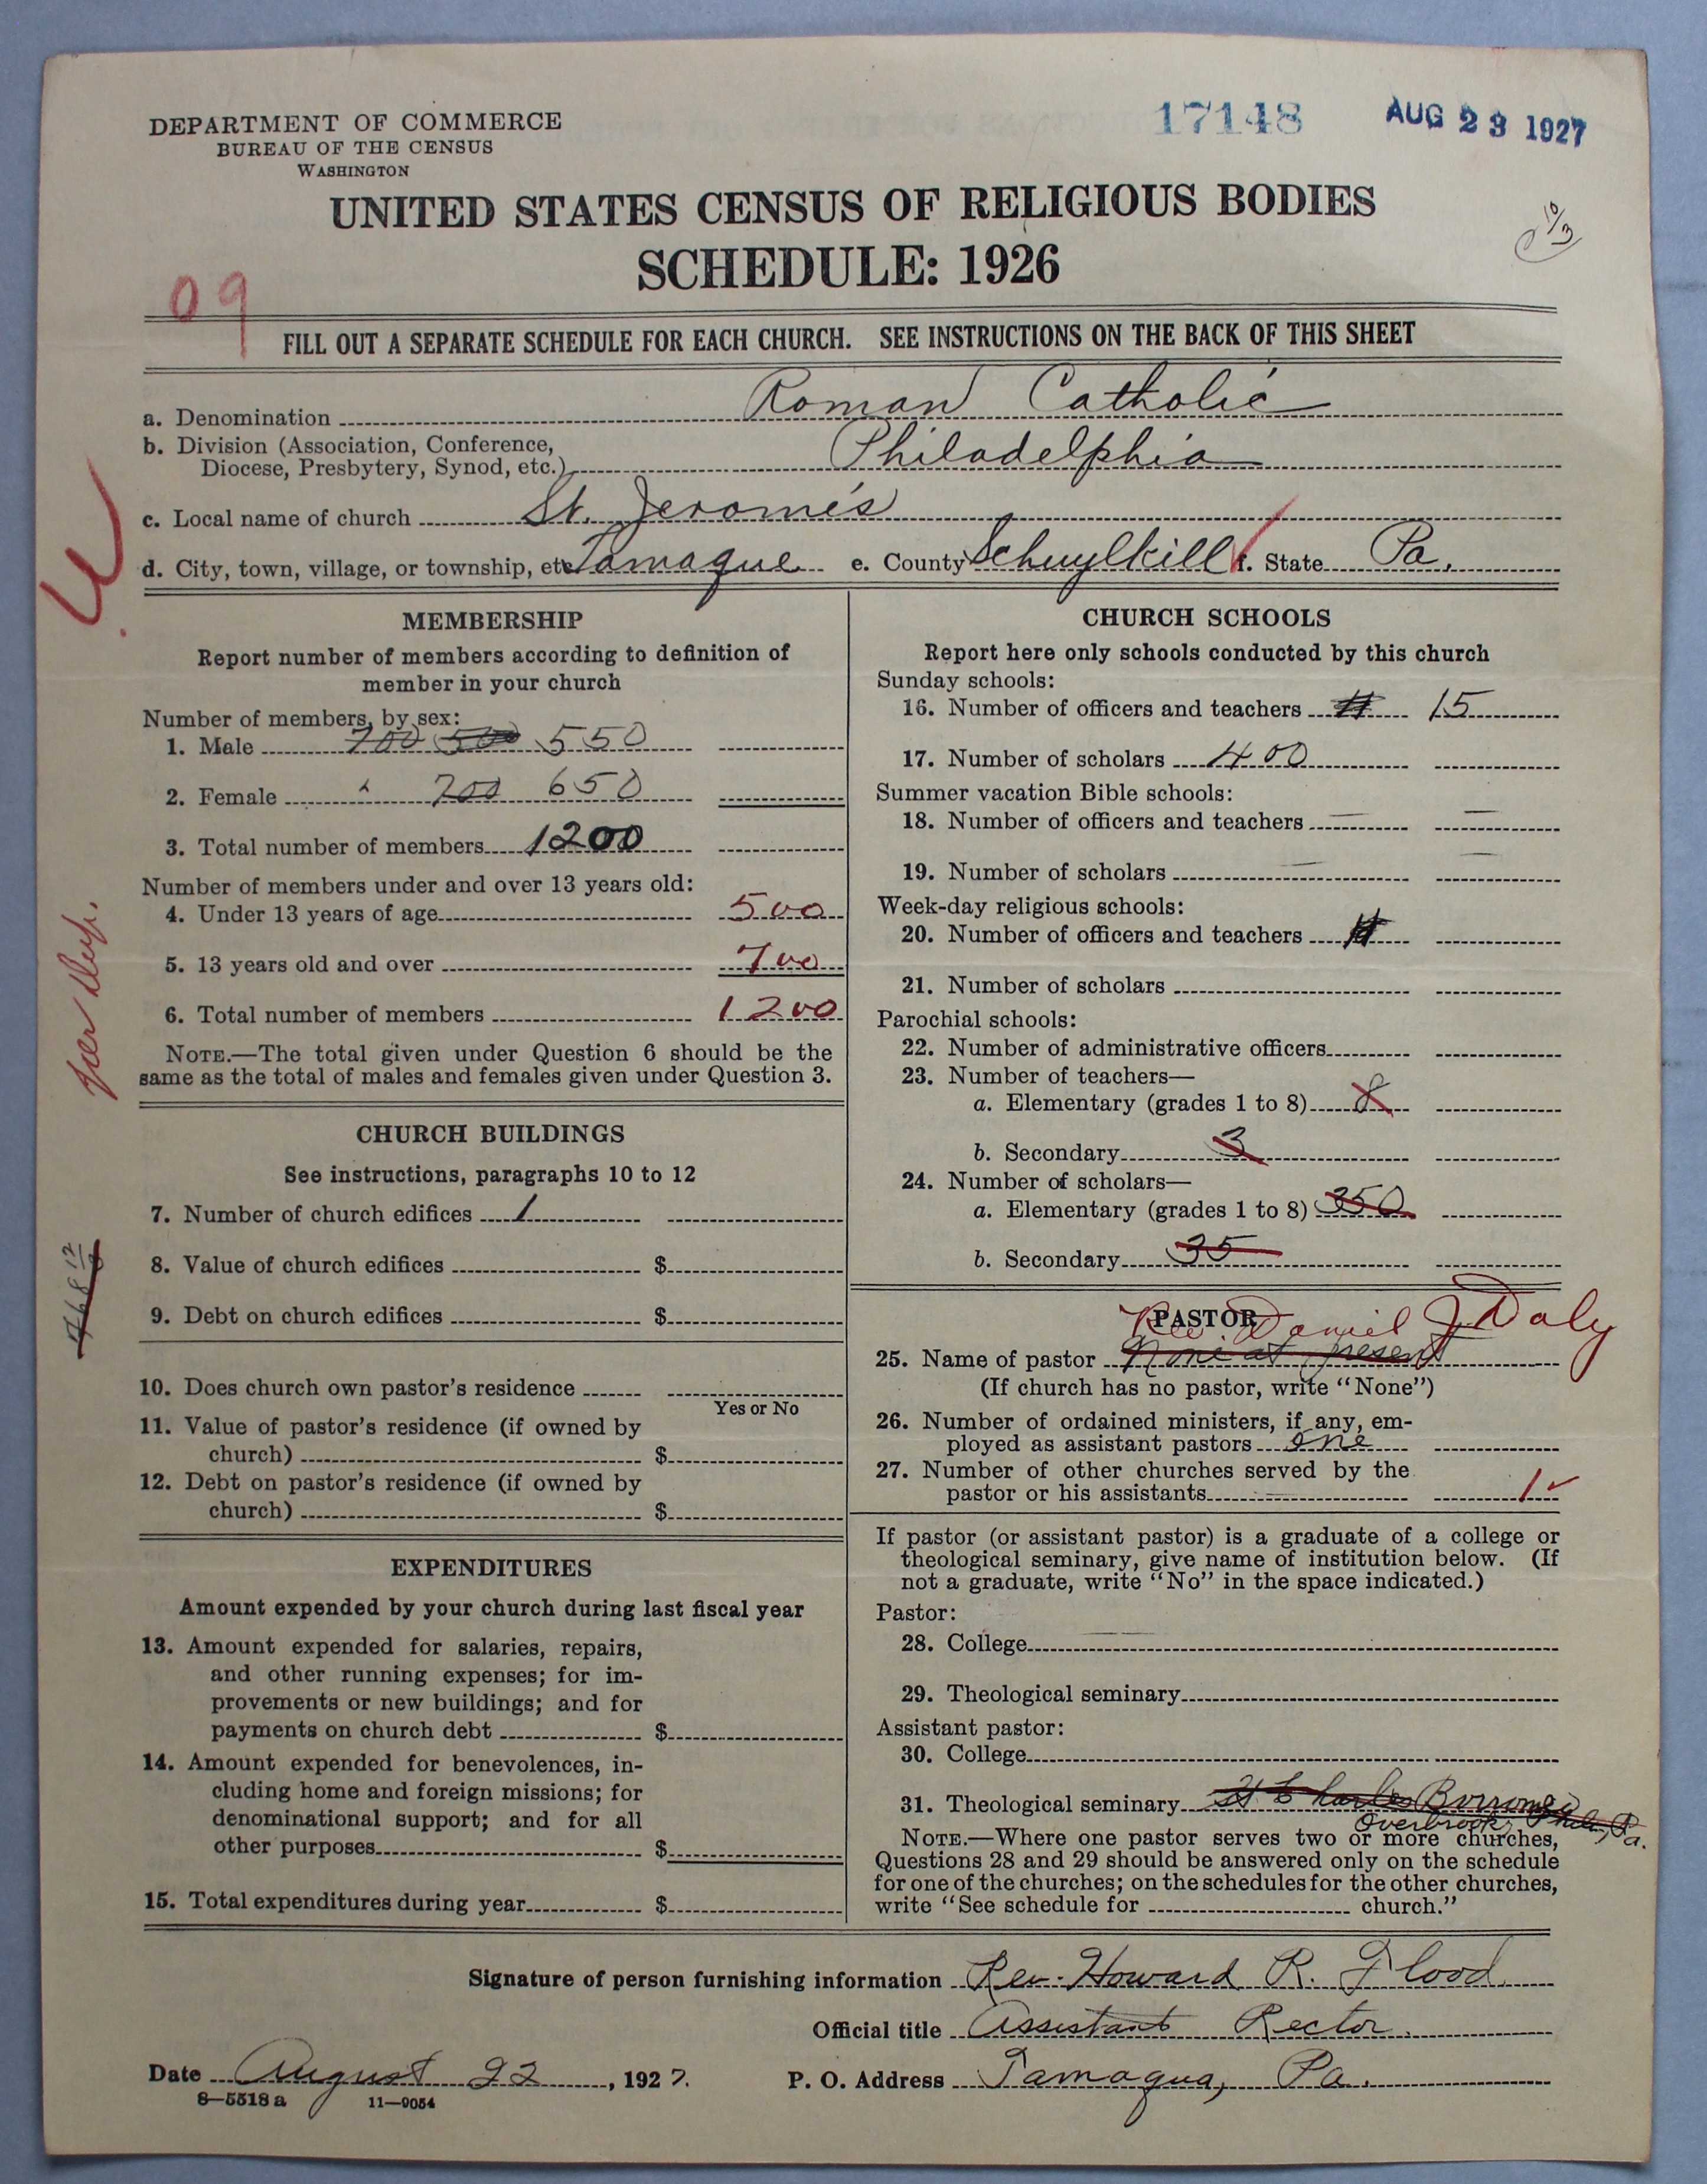 17148 AUG 23 1927
DEPARTMENT OF COMMERCE
BUREAU OF THE CENSUS
WASHINGTON
UNITED STATES CENSUS OF RELIGIOUS BODIES
SCHEDULE: 1926
10/3
09
FILL OUT A SEPARATE SCHEDULE FOR EACH CHURCH. SEE INSTRUCTIONS ON THE BACK OF THIS SHEET
a. Denomination Roman Catholic
b. Division (Association, Conference,
Diocese, Presbytery, Synod, etc.) Philadelphia
c. Local name of church St. Jerome's
d. City, town, village, or township, etc. Tamaque e. County Schuylkill f. State Pa.
MEMBERSHIP
Report number of members according to definition of
member in your church
Number of members, by sex:
1. Male 700 500 550
2. Female 700 650
3. Total number of members 1200
Number of members under and over 13 years old:
4. Under 13 years of age 500
5. 13 years old and over 700
6. Total number of members 1200
NOTE.—The total given under Question 6 should be the
same as the total of males and females given under Question 3.
CHURCH BUILDINGS
See instructions, paragraphs 10 to 12
7. Number of church edifices 1
8. Value of church edifices $
9. Debt on church edifices $
10. Does church own pastor's residence
Yes or No
11. Value of pastor's residence (if owned by
church) $
12. Debt on pastor's residence (if owned by
church) $
EXPENDITURES
Amount expended by your church during last fiscal year
13. Amount expended for salaries, repairs,
and other running expenses; for im-
provements or new buildings; and for
payments on church debt $
14. Amount expended for benevolences, in-
cluding home and foreign missions; for
denominational support; and for all
other purposes $
15. Total expenditures during year $
CHURCH SCHOOLS
Report here only schools conducted by this church
Sunday schools:
16. Number of officers and teachers 15
17. Number of scholars 400
Summer vacation Bible schools:
18. Number of officers and teachers — —
19. Number of scholars — —
Week-day religious schools:
20. Number of officers and teachers
21. Number of scholars
Parochial schools:
22. Number of administrative officers
23. Number of teachers—
a. Elementary (grades 1 to 8) 8
b. Secondary 3
24. Number of scholars—
a. Elementary (grades 1 to 8) 350
b. Secondary 35
PASTOR
Rev. Daniel J Daly
25. Name of pastor None at present
(If church has no pastor, write "None")
26. Number of ordained ministers, if any, em-
ployed as assistant pastors One
27. Number of other churches served by the
pastor or his assistants 1
If pastor (or assistant pastor) is a graduate of a college or
theological seminary, give name of institution below. (If
not a graduate, write "No" in the space indicated.)
Pastor:
28. College
29. Theological seminary
Assistant pastor:
30. College
31. Theological seminary St Charles Borromeo
Overbrook, Phila, Pa.
NOTE.—Where one pastor serves two or more churches,
Questions 28 and 29 should be answered only on the schedule
for one of the churches; on the schedules for the other churches,
write "See schedule for church."
Signature of person furnishing information Rev. Howard R. Flood
Official title Assistant Rector
Date August 22, 1927. P. O. Address Tamaqua, Pa.
8—5518 a 11—9054